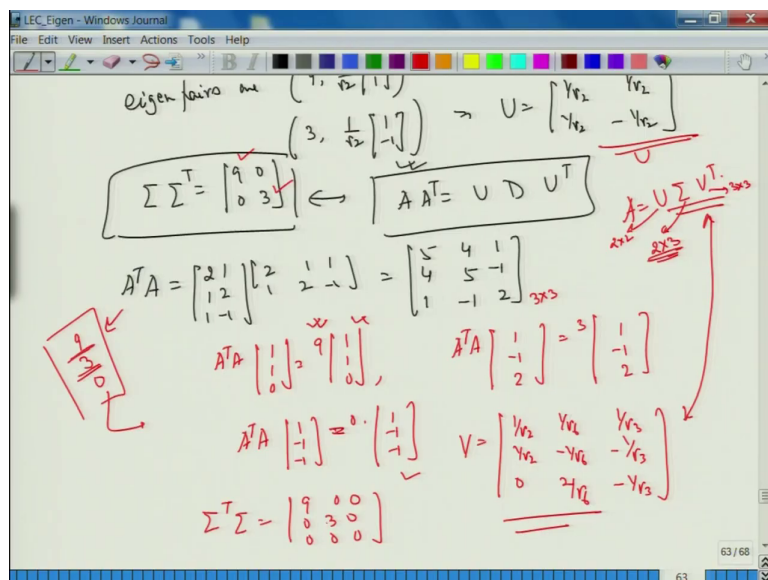 LEC_Eigen - Windows Journal
File Edit View Insert Actions Tools Help
eigen pairs are (9, 1/√2 [1 1])
(3, 1/√2 [1 -1]) ⇒ U = [1/√2 1/√2; 1/√2 -1/√2]
U
Σ Σ^T = [9 0; 0 3] ↔ A A^T = U D U^T
A = U Σ V^T. → 3x3
2x2 2x3
A^T A = [2 1; 1 2; 1 -1] [2 1 1; 1 2 -1] = [5 4 1; 4 5 -1; 1 -1 2] 3x3
9
3
0
A^T A [1; 1; 0] = 9 [1; 1; 0], A^T A [1; -1; 2] = 3 [1; -1; 2]
A^T A [1; -1; -1] = 0. [1; -1; -1] V = [1/√2 1/√6 1/√3; 1/√2 -1/√6 -1/√3; 0 2/√6 -1/√3]
Σ^T Σ = [9 0 0; 0 3 0; 0 0 0]
63 / 68
63